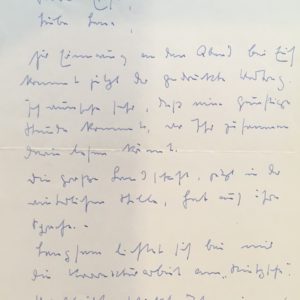 Liebe Lena,
zur Erinnerung an den Abend bei Euch
kommt jetzt der gedruckte Vortrag.
Ich wünschte sehr, daß eine günstige
Stunde kommt, wo Ihr zusammen
darin lesen könnt.
Die große Landschaft, jetzt in der
winterlichen Stille, hat auch ihre
Sprache.
Langsam lichtet sich bei mir
die Korrekturarbeit am